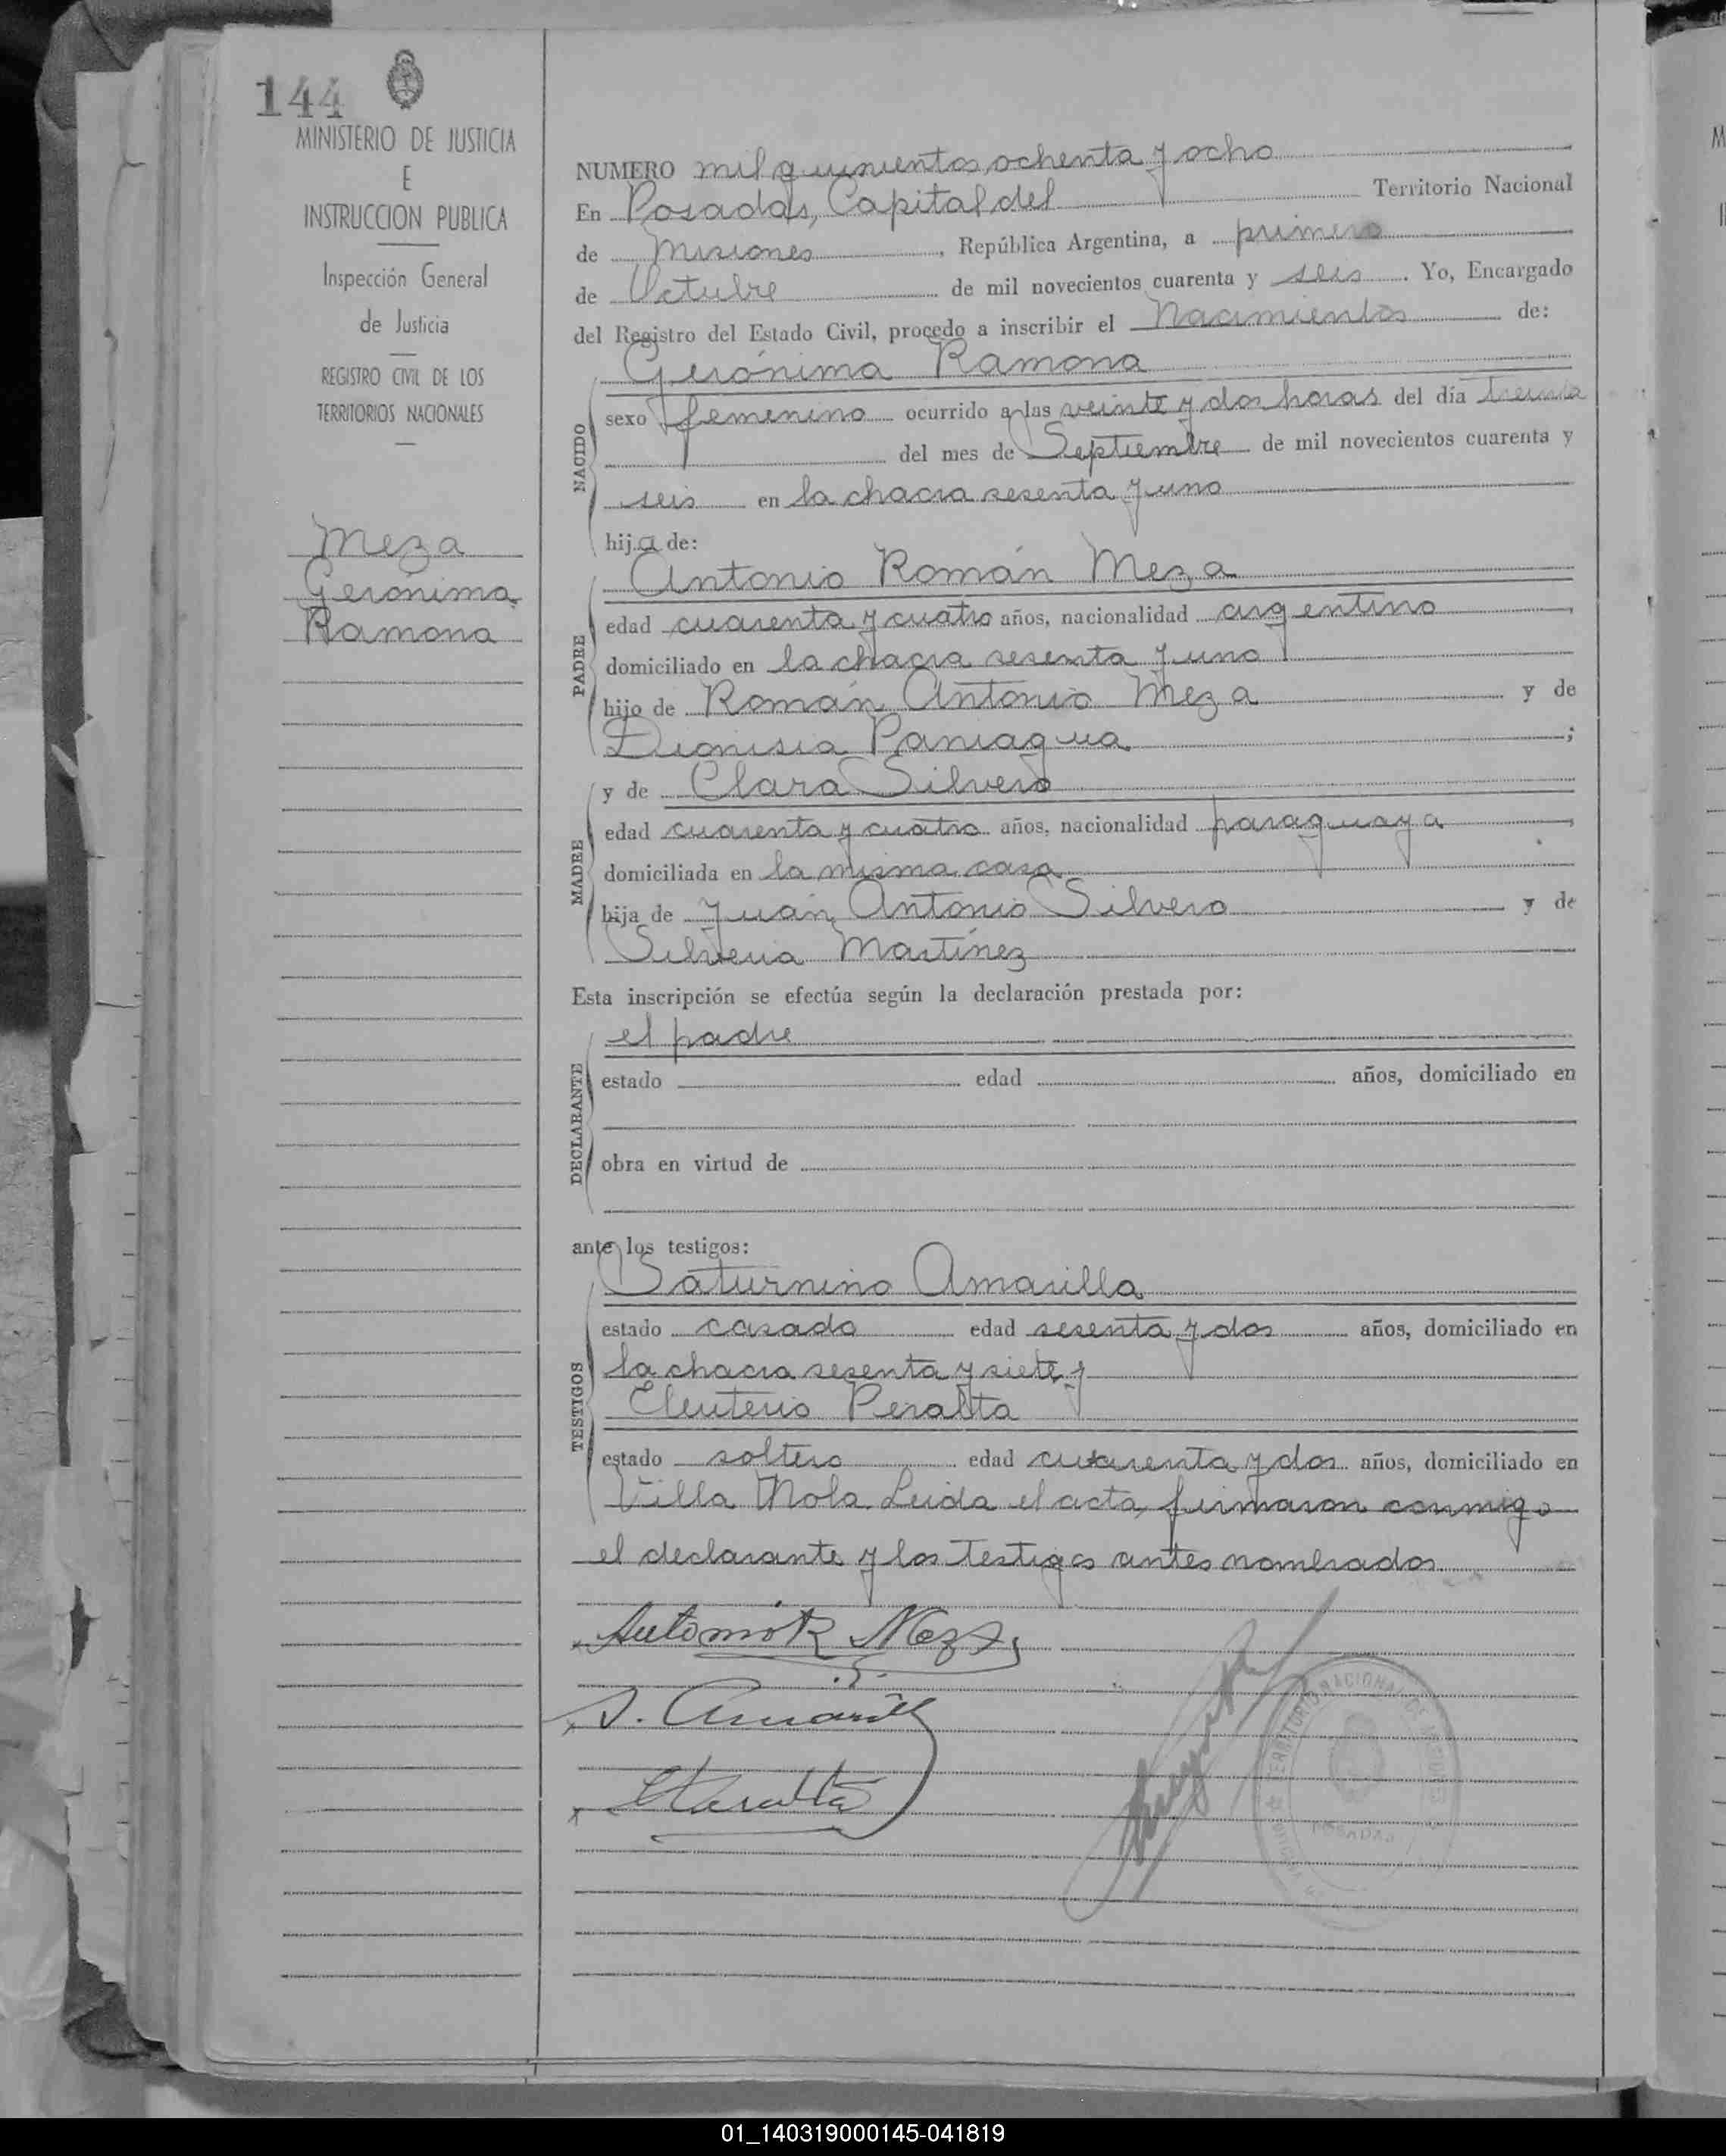 144
MINISTERIO DE JUSTICIA
E
INSTRUCCION PUBLICA
Inspección General
de Justicia
REGISTRO CIVIL DE LOS
TERRITORIOS NACIONALES
Meza
Gerónima
Ramona
NUMERO mil quinientos ochenta y ocho
En Posadas, Capital del Territorio Nacional
de Misiones, República Argentina, a primero
de Octubre de mil novecientos cuarenta y seis. Yo, Encargado
del Registro del Estado Civil, procedo a inscribir el Nacimiento de:
NACIDO
Gerónima Ramona
sexo femenino ocurrido a las veinte y dos horas del día treinta
del mes de Septiembre de mil novecientos cuarenta y
seis en la chacra sesenta y uno
hija de:
PADRE
Antonio Román Meza
edad cuarenta y cuatro años, nacionalidad argentino,
domiciliado en la chacra sesenta y uno
hijo de Román Antonio Meza y de
Dionisia Paniagua;
MADRE
y de Clara Silvero
edad cuarenta y cuatro años, nacionalidad paraguaya,
domiciliada en la misma casa
hija de Juan Antonio Silvero y de
Silveria Martínez
Esta inscripción se efectúa según la declaración prestada por:
DECLARANTE
el padre
estado edad años, domiciliado en
obra en virtud de
ante los testigos:
TESTIGOS
Saturnino Amarilla
estado casado edad sesenta y dos años, domiciliado en
la chacra sesenta y siete y
Eleuterio Peralta
estado soltero edad cuarenta y dos años, domiciliado en
Villa Mola. Leida el acta, firmaron conmigo
el declarante y los testigos antes nombrados
Antonio R Meza
S. Amarilla
E Peralta
TERRITORIO NACIONAL DE MISIONES
POSADAS
01_140319000145-041819